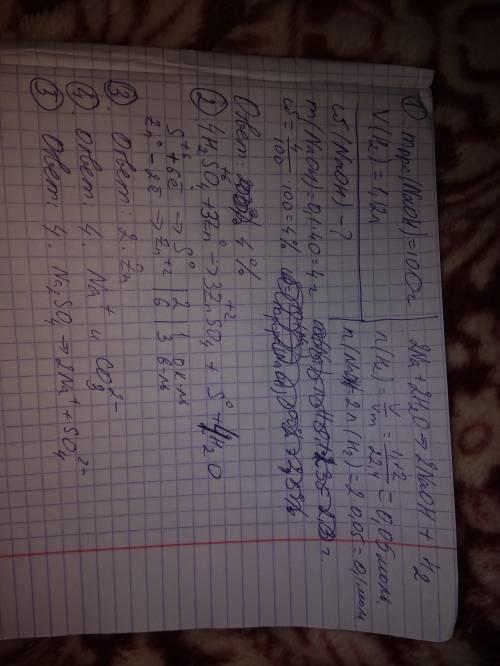 ① mр-ра(NaOH)=100г
V(H₂)=1,12л
ω(NaOH) - ?
2Na+2H₂O→2NaOH+H₂
n(H₂)=V/Vm=1,12/22,4=0,05моль
n(NaOH)=2n(H₂)=2·0,05=0,1моль
m(NaOH)=0,1·40=4г
ω=4/100·100=4%
Ответ: 4%
② 4H₂SO₄+3Zn⁰→3ZnSO₄+S⁰+4H₂O
S⁺⁶+6e̅→S⁰ | 2 | 1 ок-ль
Zn⁰-2e̅→Zn⁺² | 6 | 3 в-ль
③. Ответ: 2. Zn
④. Ответ: 4. Na⁺ и CO₃²⁻
⑤ Ответ: 4. Na₂SO₄→2Na⁺+SO₄²⁻